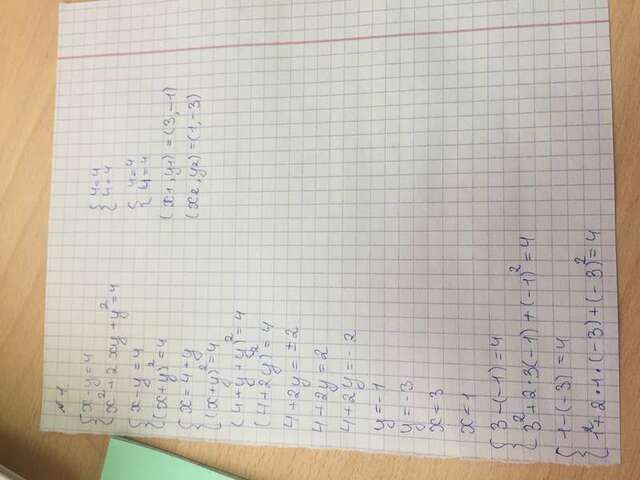 № 1.
{ x-y=4
{ x²+2xy+y²=4
{ x-y=4
{ (x+y)²=4
{ x=4+y
{ (x+y)²=4
(4+y+y)²=4
(4+2y)²=4
4+2y=±2
4+2y=2
4+2y=-2
y=-1
y=-3
x=3
x=1
{ 3-(-1)=4
{ 3²+2·3(-1)+(-1)²=4
{ 1-(-3)=4
{ 1²+2·1·(-3)+(-3)²=4
{ 4=4
{ 4=4
{ 4=4
{ 4=4
(x₁,y₁)=(3,-1)
(x₂,y₂)=(1,-3)